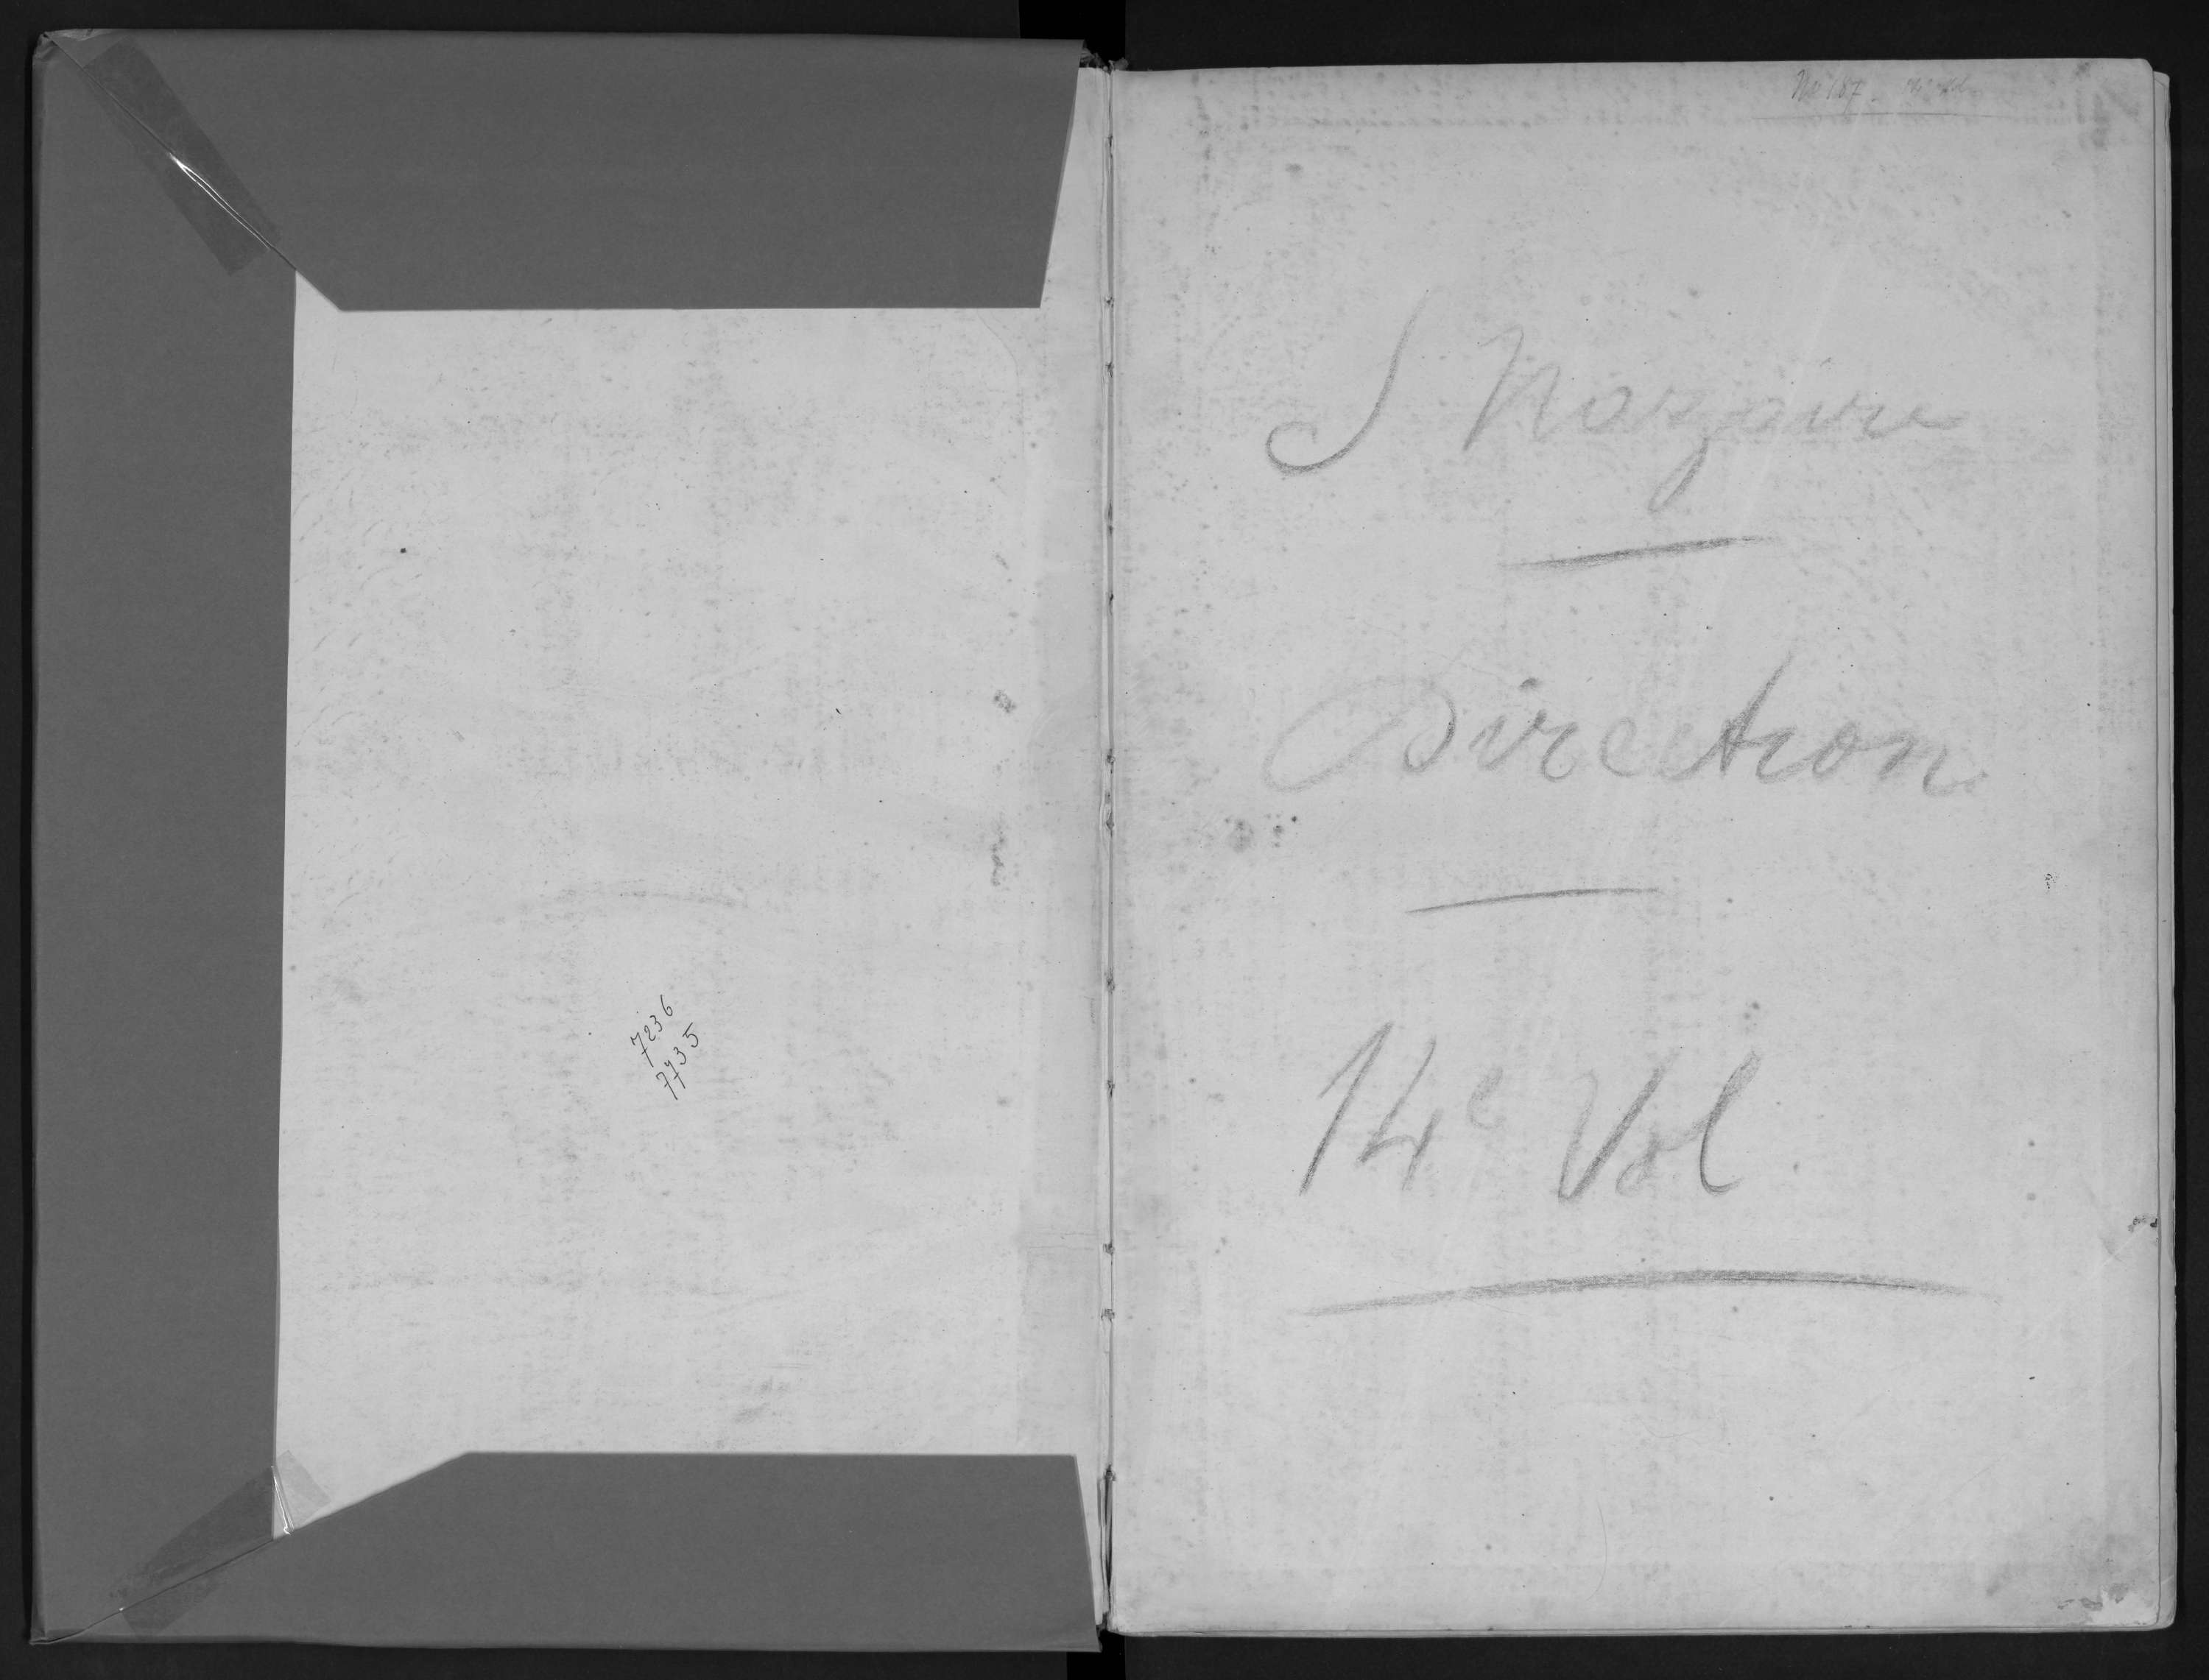 7236
7735
No 187
S Nazaire
Direction
14e Vol